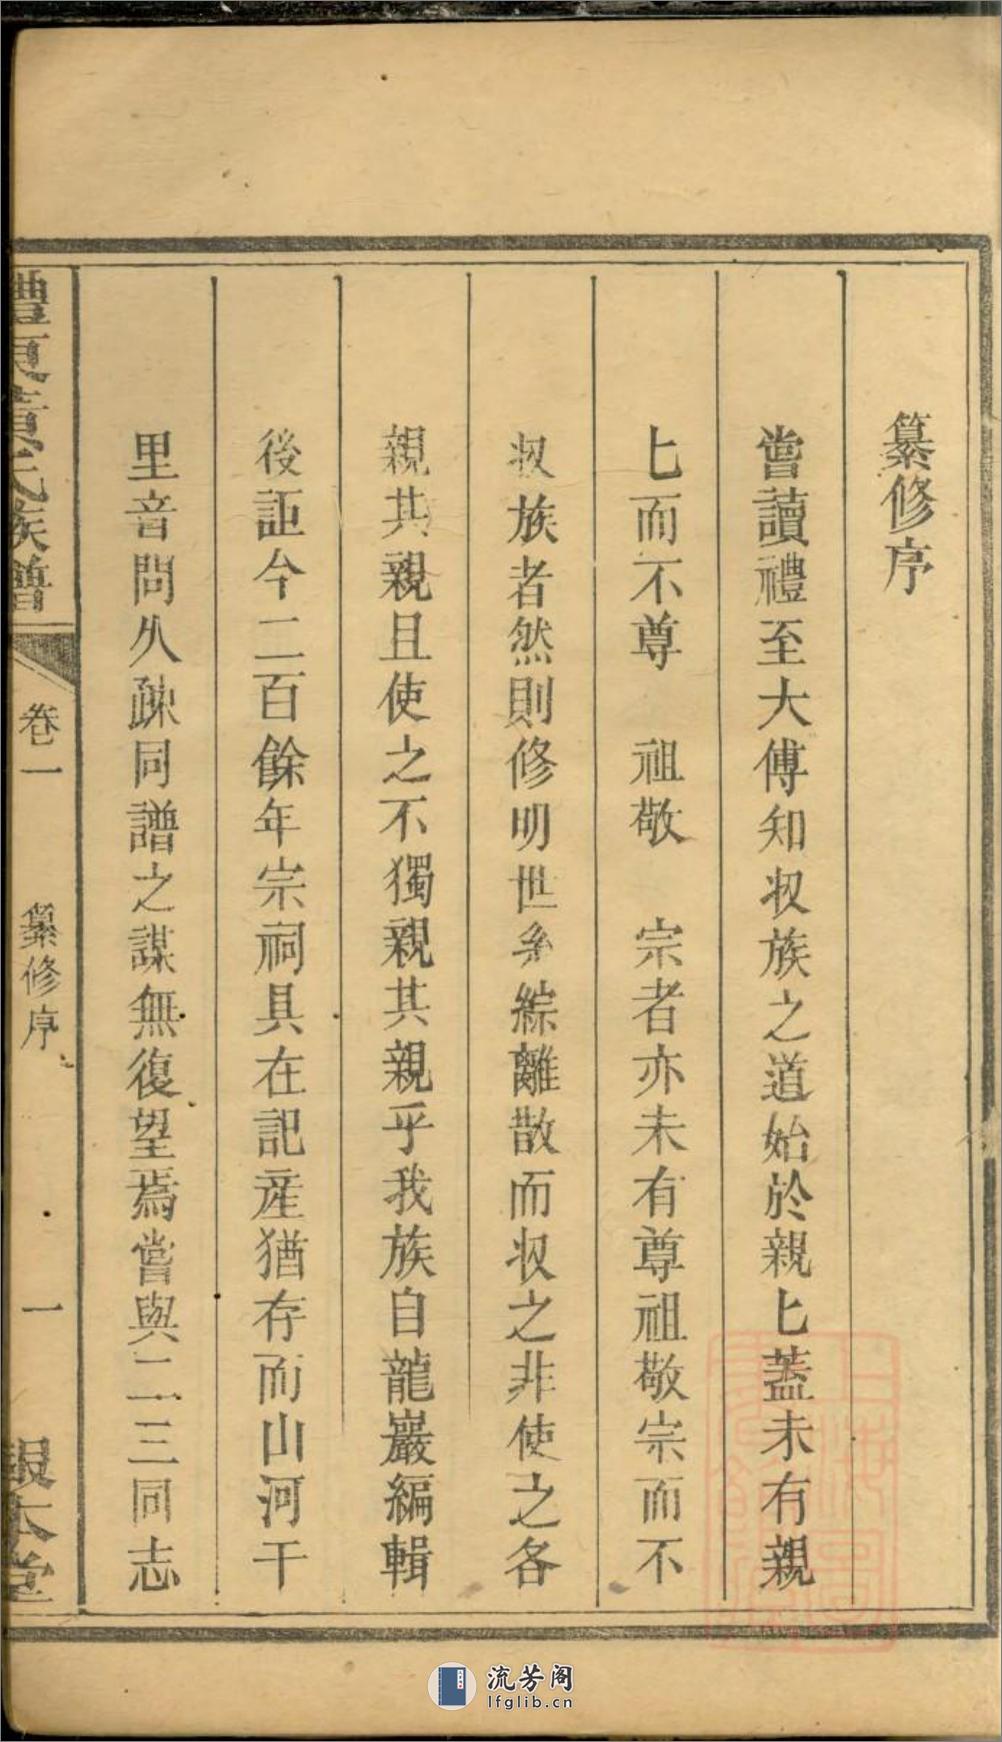 纂修序
嘗讀禮至大傅知収族之道始於親匕蓋未有親
匕而不尊　祖敬　宗者亦未有尊祖敬宗而不
収族者然則修明世系綜離散而収之非使之各
親其親且使之不獨親其親乎我族自龍巖編輯
後詎今二百餘年宗祠具在記産猶存而山河千
里音問久疎同譜之謀無復望焉嘗與二三同志
東黃氏族譜
卷一
纂修序
一
報本堂
流芳阁
lfglib.cn